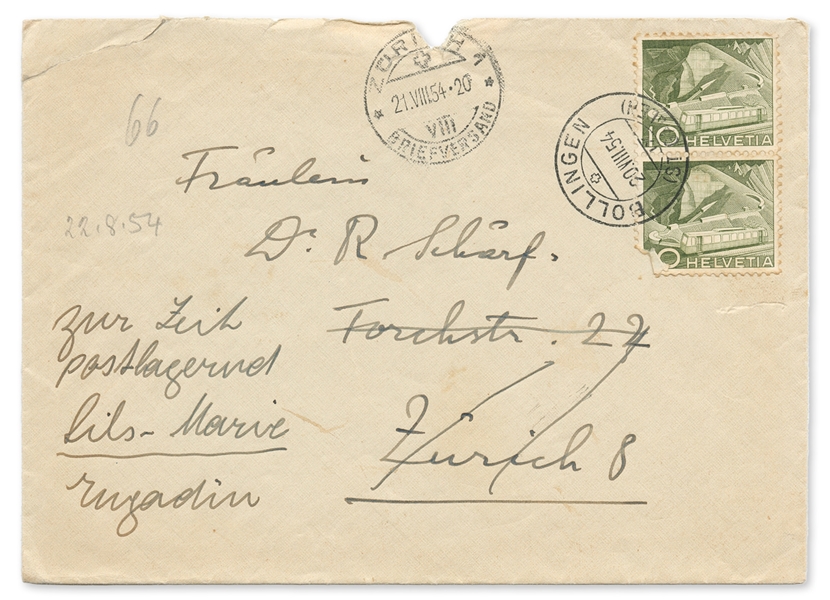 ZÜRICH 1
21.VIII.54·20
VIII
BRIEFVERSAND
BOLLINGEN (ST. GALLEN)
20.VIII.54
10 HELVETIA
10 HELVETIA
66
22.8.54
Fräulein
Dr. R Schärf.
Forchstr. 22
Zürich 8
zur Zeit
postlagernd
Sils-Marie
Engadin